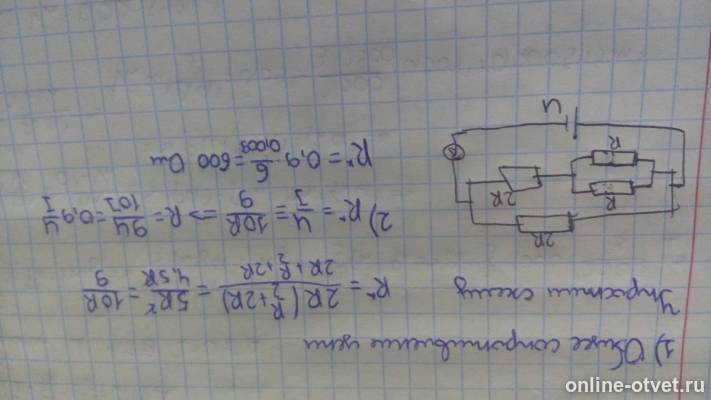 1) Общее сопротивление цепи
Упростим схему
R* = 2R(R/2 + 2R) / 2R + R/2 + 2R = 5R² / 4,5R = 10R / 9
2) R* = U/I = 10R/9 => R = 9U/10I = 0,9 U/I
R* = 0,9 · 6/0,009 = 600 Ом
2R
2R
R
R
A
U
online-otvet.ru